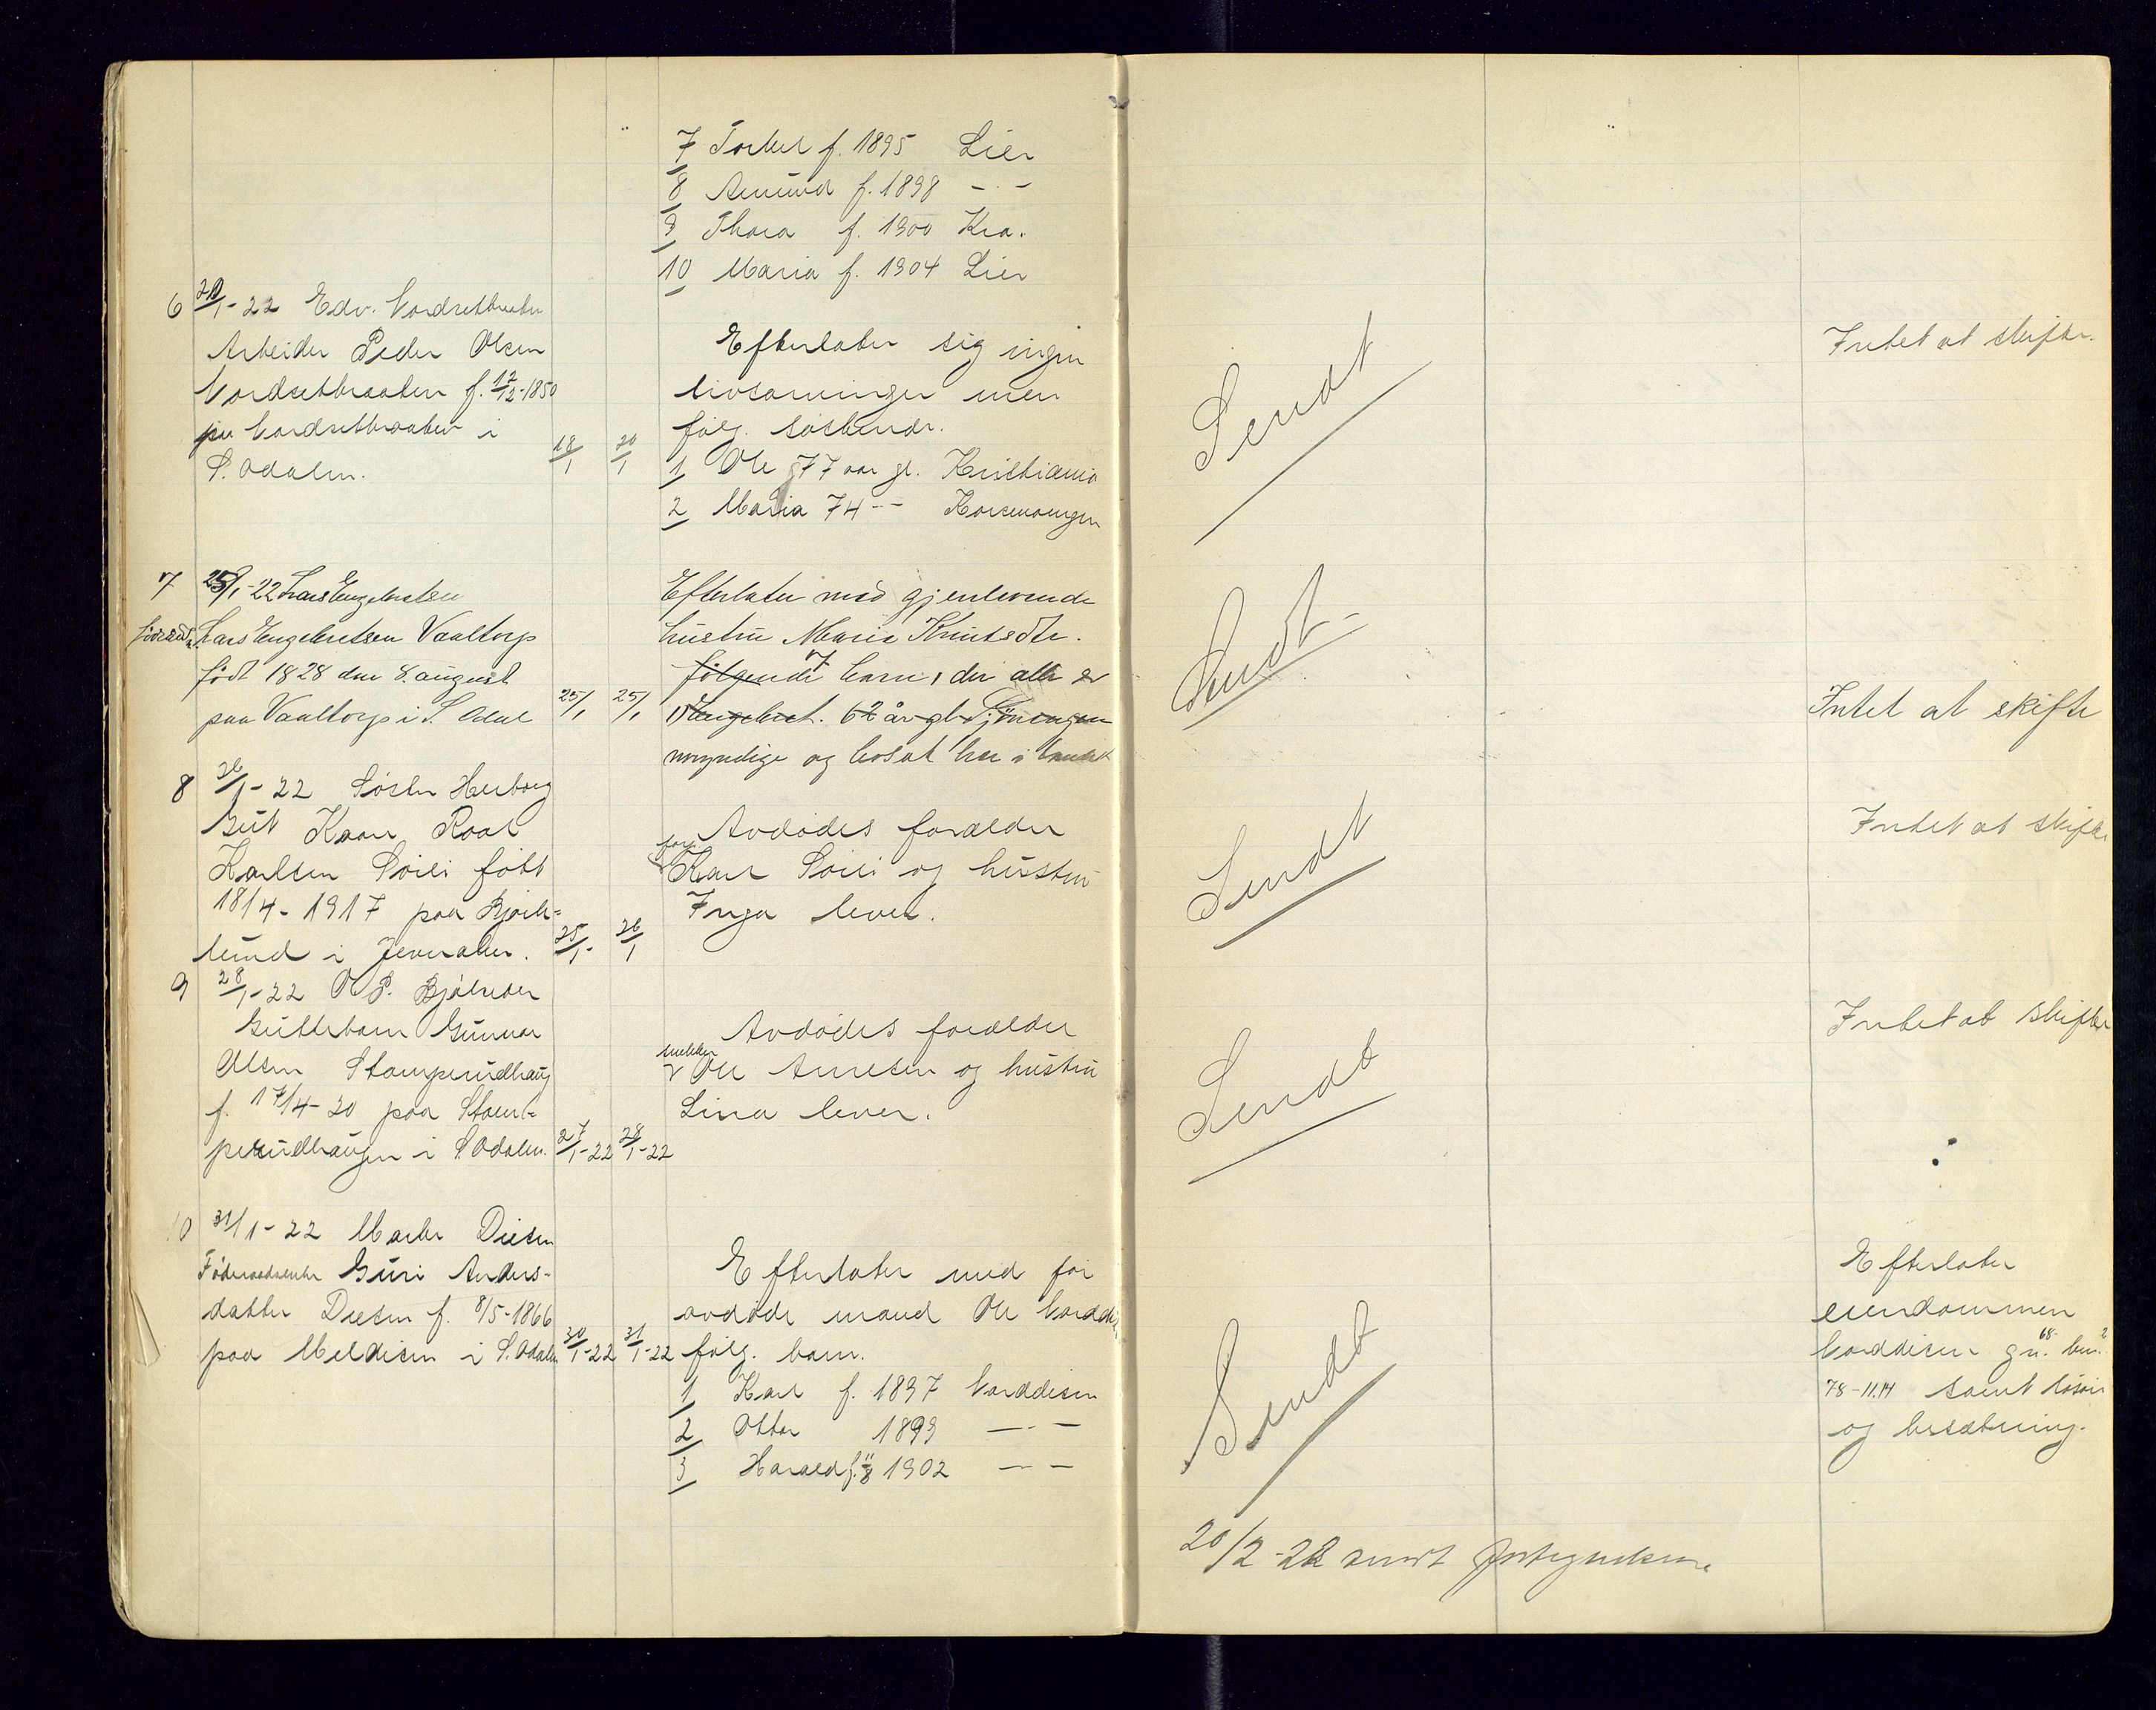 7 Torkel f. 1895 Lier
8 Amund f. 1898 - " -
9 Thora f. 1900 Kra.
10 Maria f. 1904 Lier
6 20/1-22 Edv. Nordsetbraaten
Arbeider Peder Olsen
Nordsetbraaten f. 12/12-1850
paa Nordsetbraaten i
S. Odalen. 18/1 20/1
Efterlater sig ingen
livsarvinger men
følg. søskende.
1 Ole 77 aar gl. Kristiania
2 Maria 74 - " - Kongsvinger
Sendt
Intet at skifte.
7 25/1-22 Lars Engebretsen
Lars Engebretsen Vaaltorp
født 1828 den 8. august
paa Vaaltorp i S. Odal 25/1 25/1
Efterlater med gjenlevende
hustru Maria Knutsdtr.
følgende 7 barn, der alle er
1) Engebret. 62 år gl.
myndige og bosat her i landet
Sendt
Intet at skifte
8 26/1-22 Søster Herborg
Gut Kaare Roal
Karlsen Soili født
18/4-1917 paa Bjørk=
lund i Jevnaker. 25/1- 26/1
Avdødes forælder
Karl Soili og hustru
Inga lever.
Sendt
Intet at skifte
9 28/1-22 O. P. Bjølseder
Guttebarn Gunnar
Olsen Stamperudhaug
f. 17/4-20 paa Stam=
perudhaugen i S. Odalen. 27/1-22 28/1-22
Avdødes forælder
snekker
Ole Arnesen og hustru
Lina lever.
Sendt
Intet at skifte
10 31/1-22 Marke Disen
Føderaadsenke Guri Anders-
datter Disen f. 8/5-1866
paa Meldisen i S. Odalen 30/1-22 31/1-22
Efterlater med før
avdøde mand Ole Norddisen
følg. barn.
1 Karl f. 1897 Norddisen
2 Ottar 1899 - " -
3 Harald f. 11/8 1902 - " -
Sendt
Efterlater
eiendommen
Norddisen gn. 68. bn. 2
78-11.14 samt løsøre
og besætning.
20/2-22 sendt fortegnelsen.